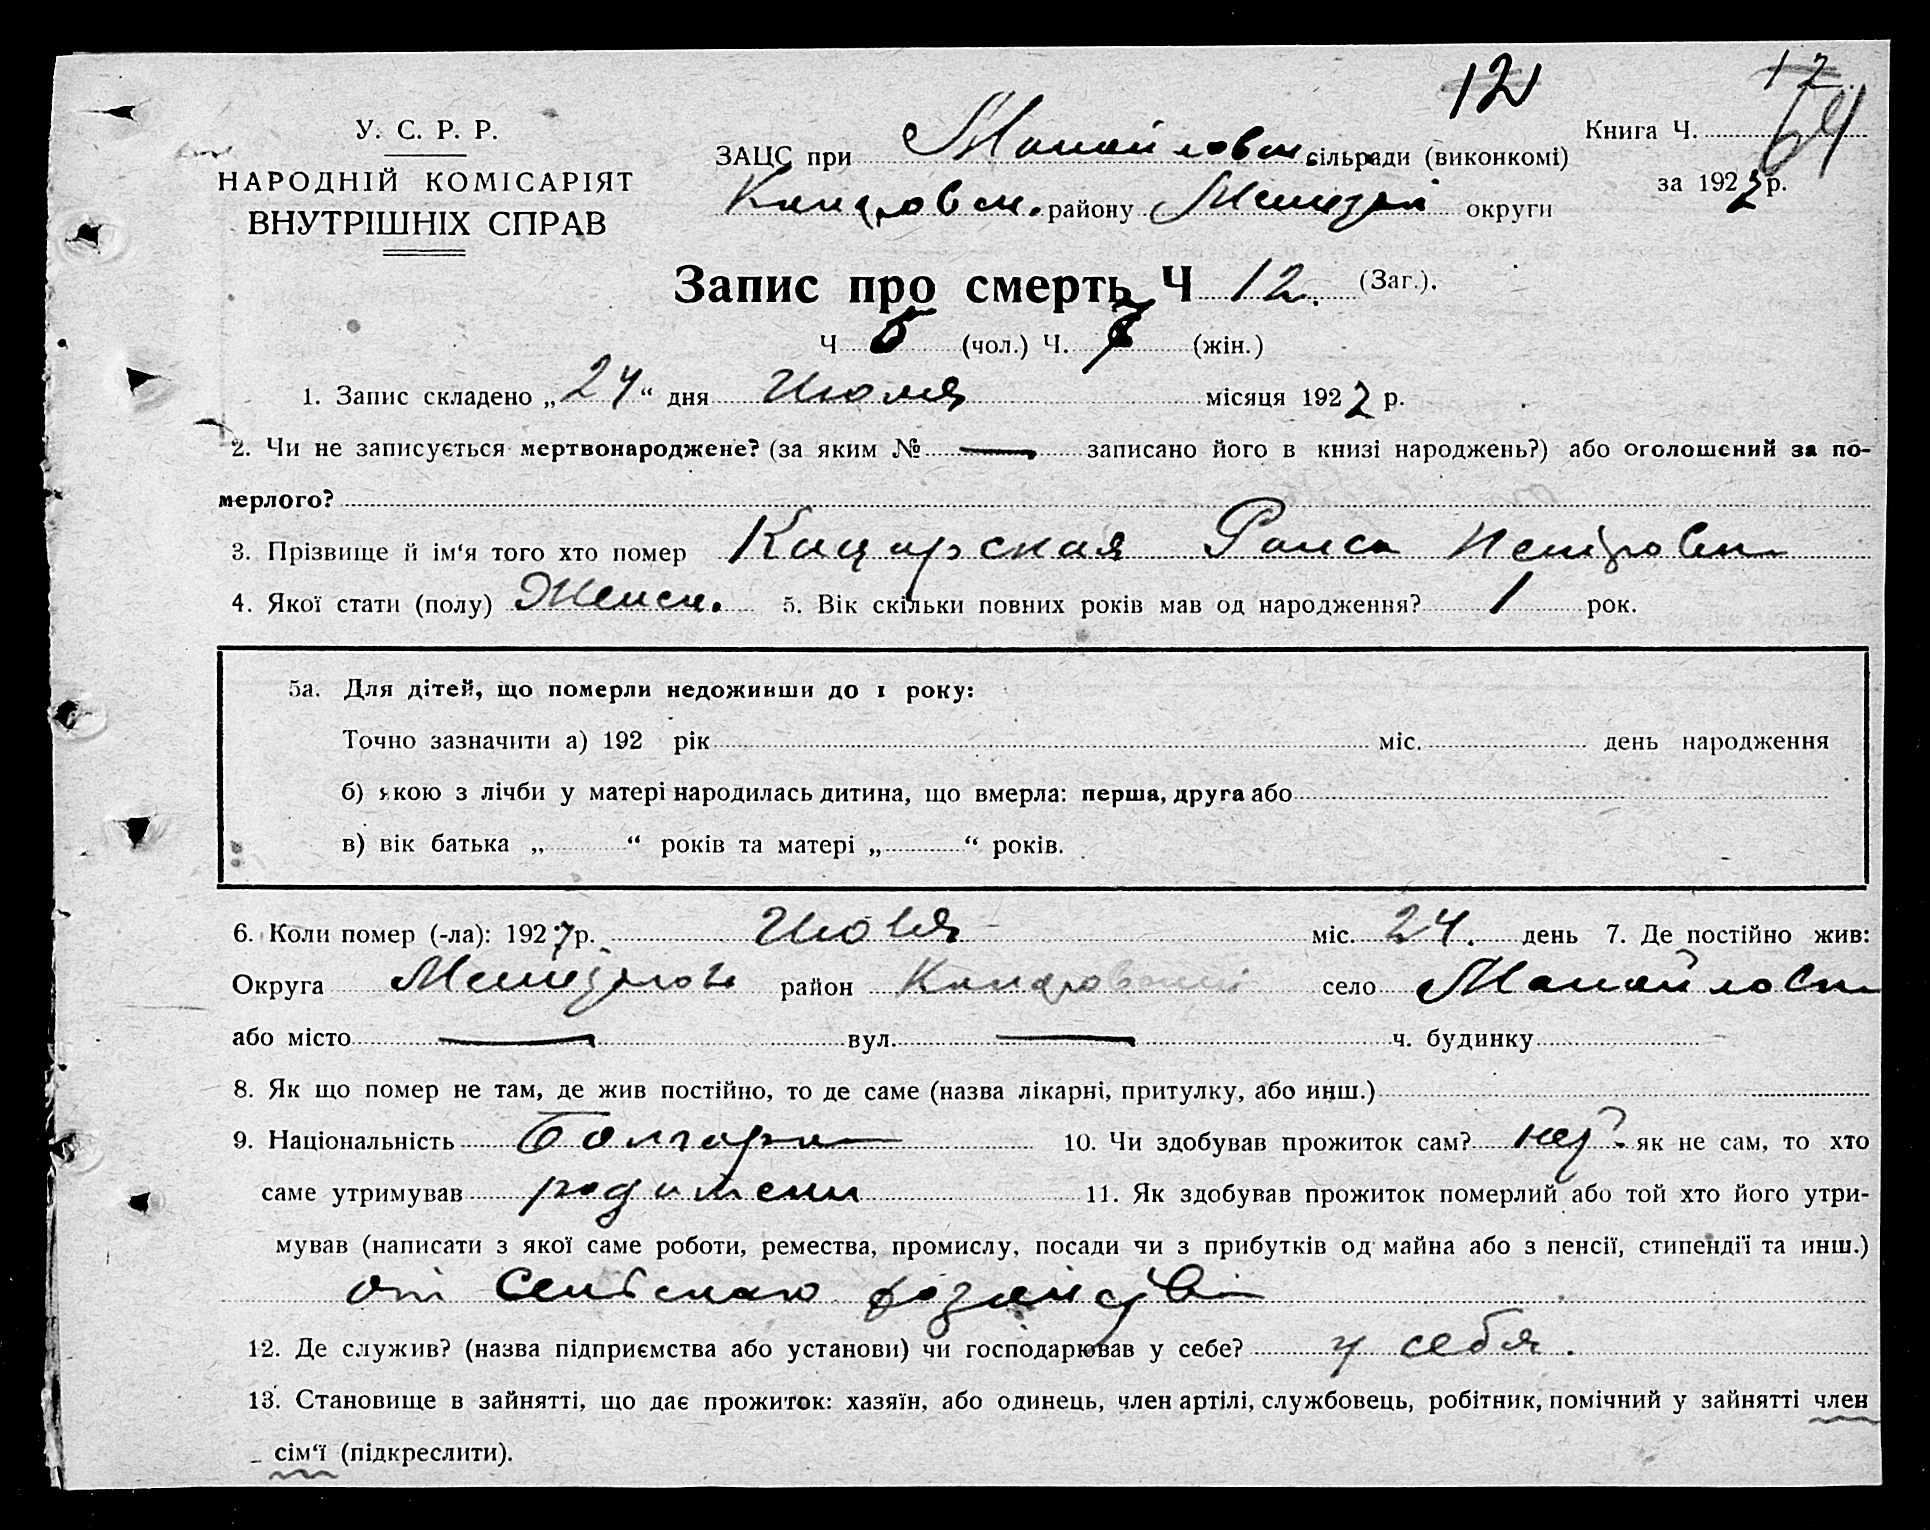 12
17
64
У. С. Р. Р.
НАРОДНІЙ КОМІСАРІЯТ
ВНУТРІШНІХ СПРАВ
ЗАЦС при Манайловск. сільради (виконкомі)
району Мелитоп округи
Книга Ч.
за 1927 р.
Запис про смерть Ч 12. (Заг.).
Ч 5 (чол.) Ч. 7 (жін.)
1. Запис складено „24“ дня Июля місяця 1927 р.
2. Чи не записується мертвонароджене? (за яким № — записано його в книзі народжень?) або оголошений за по-
мерлого?
3. Прізвище й ім‘я того хто помер Кацарская Раиса Петровн
4. Якої стати (полу) Женск. 5. Вік скільки повних років мав од народження? 1 рок.
5а. Для дітей, що померли недоживши до 1 року:
Точно зазначити а) 192 рік міс. день народження
б) якою з лічби у матері народилась дитина, що вмерла: перша, друга або
в) вік батька „ “ років та матері „ “ років.
6. Коли помер (-ла): 1927 р. Июля міс. 24. день 7. Де постійно жив:
Округа район село Манайловк
або місто — вул. — ч. будинку
8. Як що помер не там, де жив постійно, то де саме (назва лікарні, притулку, або инш.)
9. Національність Болгарка 10. Чи здобував прожиток сам? нет. як не сам, то хто
саме утримував родители 11. Як здобував прожиток померлий або той хто його утри-
мував (написати з якої саме роботи, ремества, промислу, посади чи з прибутків од майна або з пенсії, стипендії та инш.)
от сельскаго хозяйства
12. Де служив? (назва підприємства або установи) чи господарював у себе? у себя.
13. Становище в зайнятті, що дає прожиток: хазяїн, або одинець, член артілі, службовець, робітник, помічний у зайнятті член
сім‘ї (підкреслити).